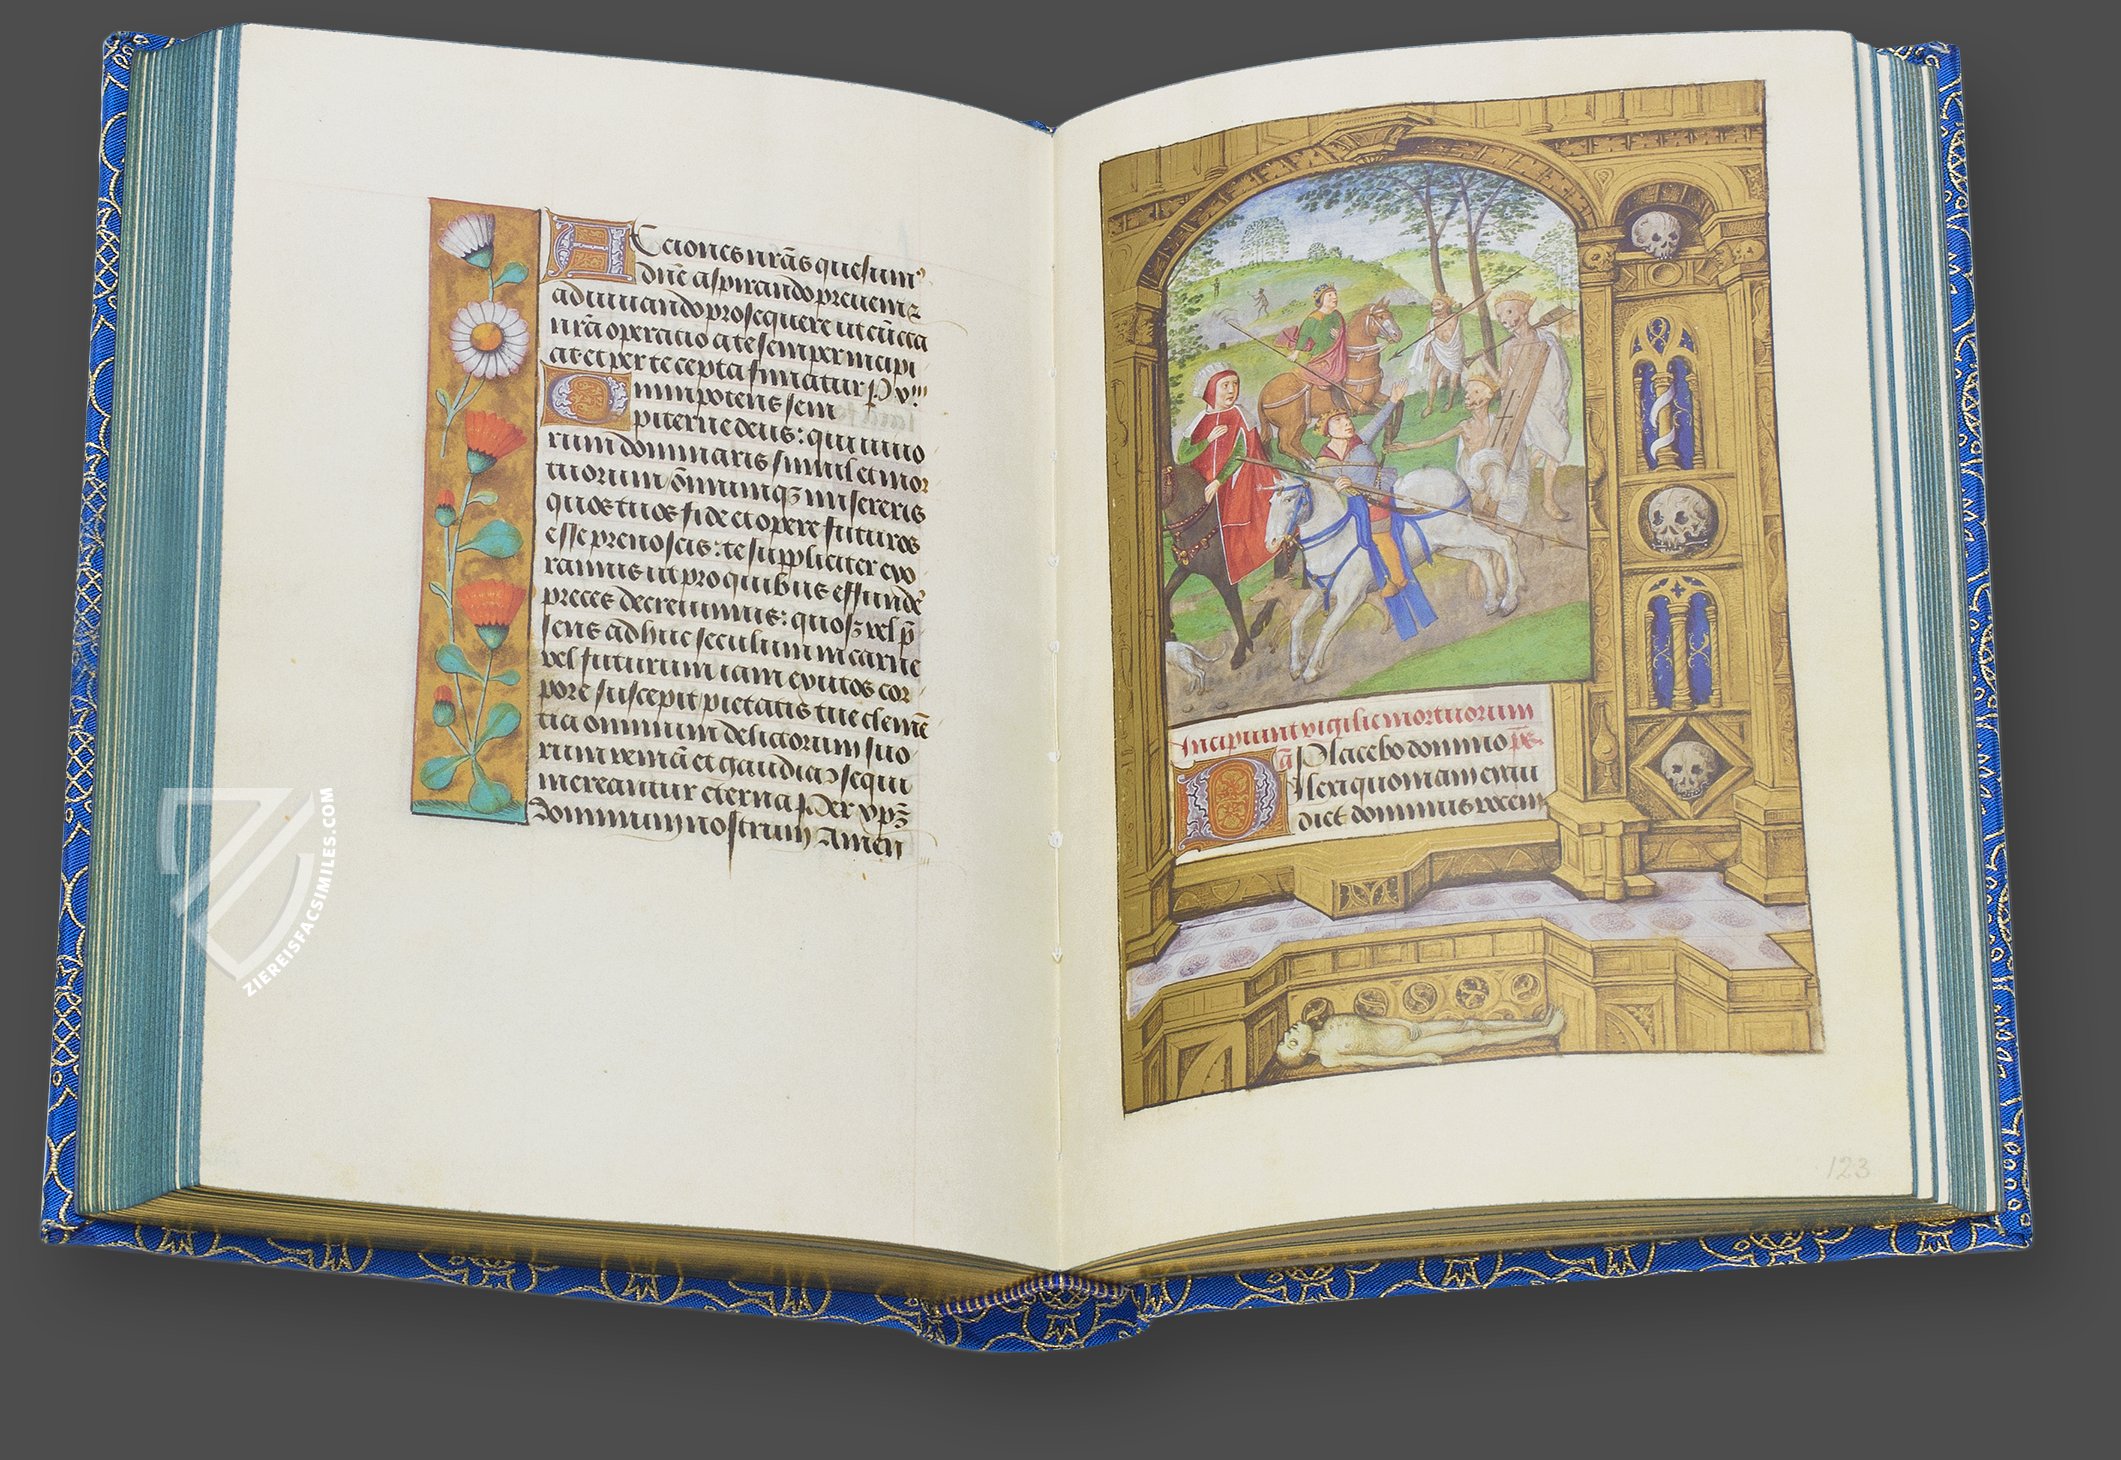 Acciones nr̃as quesum⁹
dñe aspirando preueni⁊
adiuuando prosequere ut cũcta
nr̃a operatio a te semper incipi
at et per te cepta finiatur P
Omnipotens sem
piterne deus: qui uiuo
rum dominaris simul et mor
tuorum om̃iumqꝫ misereris
quos tuos fide et opere futuros
esse prenoscis: te suppliciter exo
ramus ut pro quibus effundẽ
preces decreuimus: quosqꝫ vel p̃
sens adhuc seculum in carne
vel futurum iam exutos cor
pore suscepit pietatis tue clemẽ
tia omnium delictorum suo
rum veniã et gaudia ↄsequi
mereantur eterna Per xpꝫ
dominum nostrum Amen
Incipiunt vigilie mortuorum
ã Placebo domino ps.
Dilexi quoniam exau
diet dominus vocem
123
ZIEREISFACSIMILES.COM